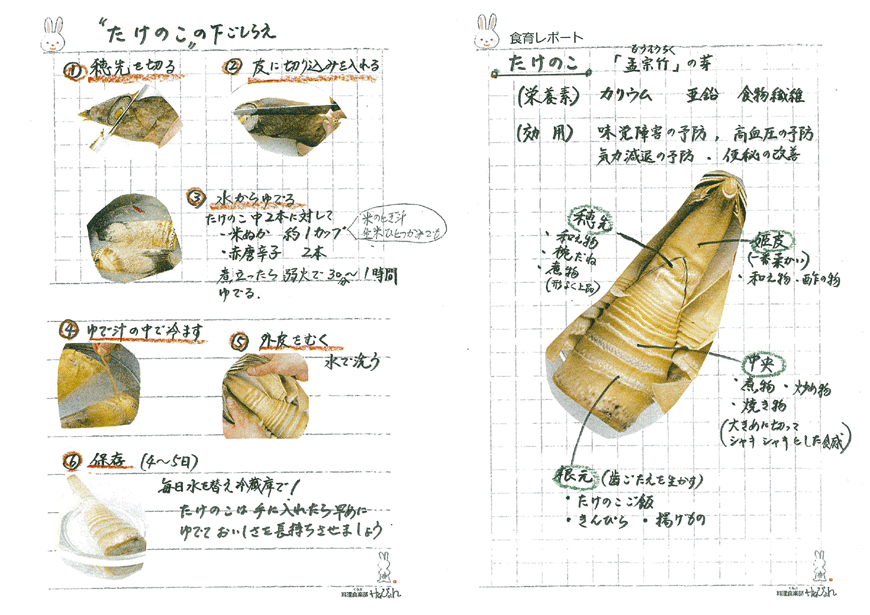 "たけのこ"の下ごしらえ
① 穂先を切る
② 皮に切り込みを入れる
③ 水からゆでる
たけのこ中2本に対して
・米ぬか 約1カップ
米のとぎ汁
生米ひとつかみでも
・赤唐辛子 2本
煮立ったら弱火で30分〜1時間
ゆでる.
④ ゆで汁の中で冷ます
⑤ 外皮をむく
水で洗う
⑥ 保存 (4〜5日)
毎日水を替え冷蔵庫で!
たけのこは手に入れたら早めに
ゆでておいしさを長持ちさせましょう
料理倶楽部
食育レポート
もうそうちく
たけのこ 「孟宗竹」の芽
(栄養素) カリウム 亜鉛 食物繊維
(効用) 味覚障害の予防, 高血圧の予防
気力減退の予防・便秘の改善
穂先
・和え物
・椀だね
・煮物
(形よく上品)
姫皮
(一番柔かい)
・和え物・酢の物
中央
・煮物・炒め物
・焼き物
(大きめに切って
シャキシャキとした食感)
根元 (歯ごたえを生かす)
・たけのこご飯
・きんぴら ・揚げもの
料理倶楽部